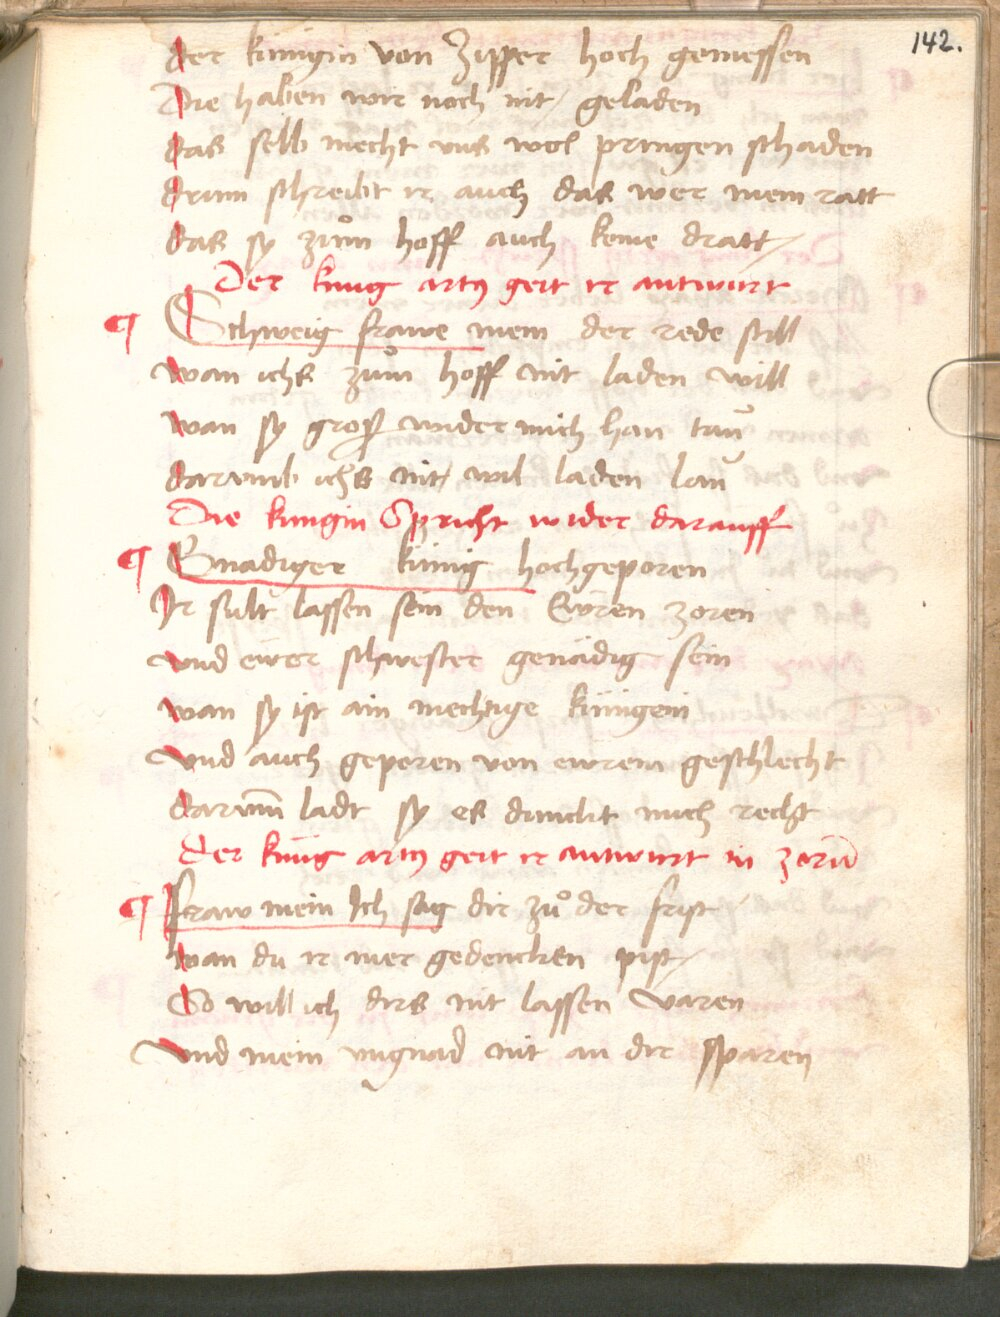 142.
der künigin von Zipper hoch gemessen
Die haben wir noch nit geladen
das selb mecht uns wol pringen schaden
drum schreibt ir auch das wer mein ratt
das sy zům hoff auch keme dratt
Der kung artus gert ir antwurt
¶ Schweig frawe mein der rede still
wan ichs zům hoff nit laden will
wan sy groß wider mich han taũ
darumb ichs nit wil laden laũ
Die kungin Spricht wider darauff
¶ Gnadiger künig hochgeporen
Ir sult lassen sein den Eẅren zoren
vnd eẅer schwester genädig sein
wan sy ist ain mechtige küngein
vnd auch geporen von ewrem geschlecht
darum̃ ladt sy es dunckt mich recht
der küng artus gert ir antwurt in zorn
¶ fraw mein Ich sag dir zů der frist
wan du ir mer gedencken pist
So will ich dirs nit lassen varen
vnd mein vngnad nit an dir sparen